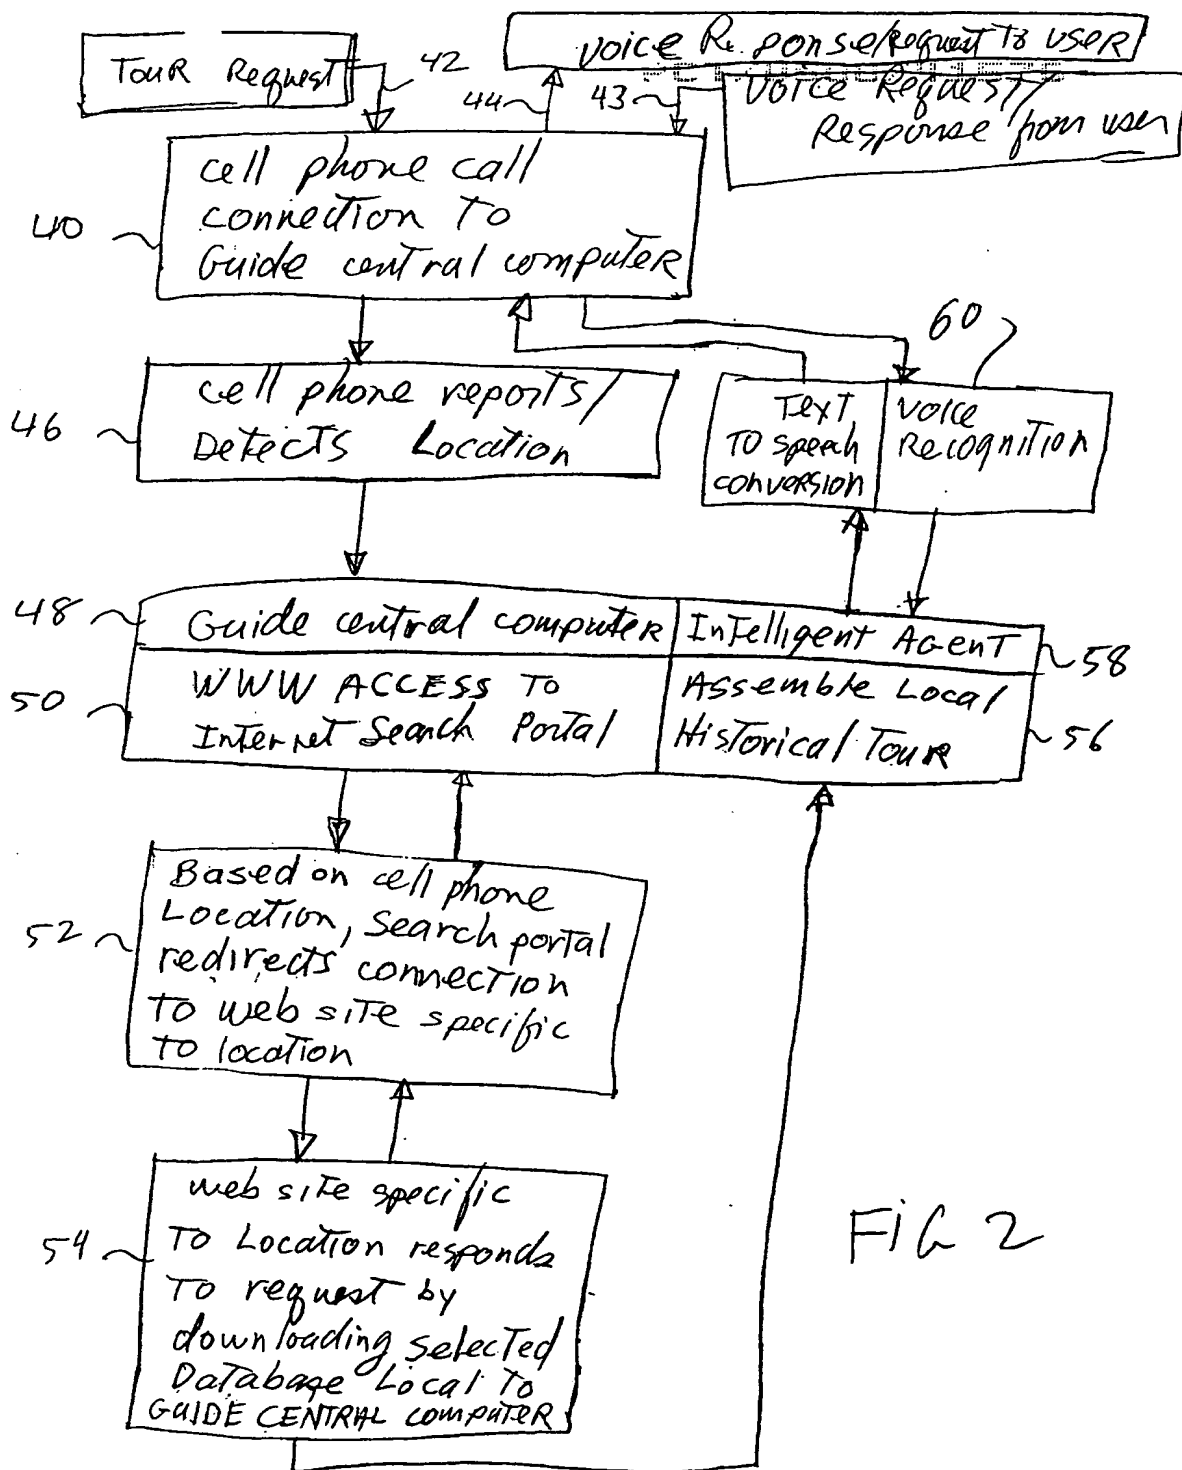 Tour Request
42
44
43
Voice Re ponse/Request To user
Voice Request/
Response from user
40
cell phone call
connection To
Guide central computer
60
46
cell phone reports/
Detects Location
Text
To speech
conversion
Voice
Recognition
48
Guide central computer
Intelligent Agent
58
50
WWW Access To
Internet Search Portal
Assemble Local
Historical Tour
56
52
Based on cell phone
Location, Search portal
redirects connection
To web site specific
To location
54
web site specific
To Location responds
To request by
downloading selected
Database Local To
GUIDE CENTRAL computer
FIG 2